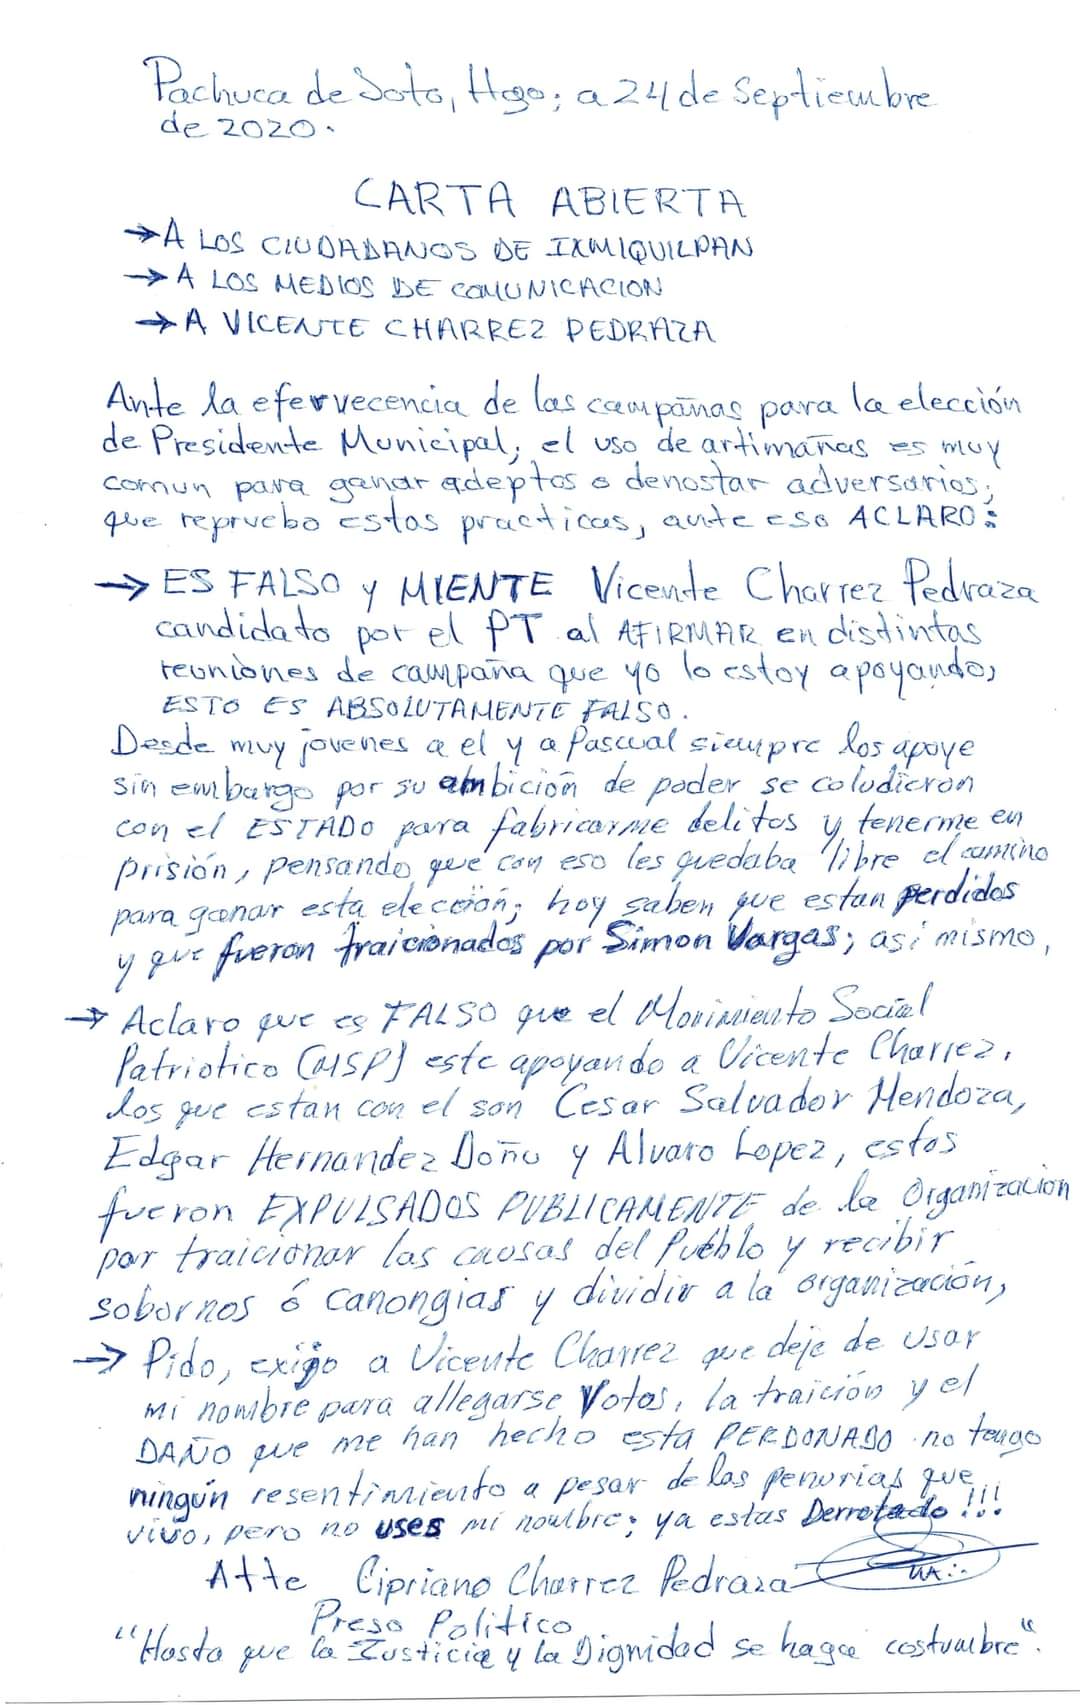 Pachuca de Soto, Hgo; a 24 de Septiembre
de 2020.
CARTA ABIERTA
→ A LOS CIUDADANOS DE IXMIQUILPAN
→ A LOS MEDIOS DE COMUNICACION
→ A VICENTE CHARREZ PEDRAZA
Ante la efervecencia de las campañas para la elección
de Presidente Municipal, el uso de artimañas es muy
comun para ganar adeptos o denostar adversarios;
que repruebo estas practicas, ante eso ACLARO:
→ ES FALSO y MIENTE Vicente Charrez Pedraza
candidato por el PT al AFIRMAR en distintas
reuniones de campaña que yo lo estoy apoyando,
ESTO ES ABSOLUTAMENTE FALSO.
Desde muy jovenes a el y a Pascual siempre los apoye
sin embargo por su ambición de poder se coludieron
con el ESTADO para fabricarme delitos y tenerme en
prisión, pensando que con eso les quedaba libre el camino
para ganar esta elección; hoy saben que estan perdidos
y que fueron traicionados por Simon Vargas; así mismo,
→ Aclaro que es FALSO que el Movimiento Social
Patriotico (MSP) este apoyando a Vicente Charrez,
los que estan con el son Cesar Salvador Mendoza,
Edgar Hernandez Doñu y Alvaro Lopez, estos
fueron EXPULSADOS PUBLICAMENTE de la Organizacion
por traicionar las causas del Pueblo y recibir
sobornos ó canongias y dividir a la organización,
→ Pido, exijo a Vicente Charrez que deje de usar
mi nombre para allegarse Votos, la traición y el
DAÑO que me han hecho esta PERDONADO no tengo
ningún resentimiento a pesar de las penurias que
vivo, pero no uses mi nombre; ya estas Derrotado!!!
Atte Cipriano Charrez Pedraza
Preso Politico
"Hasta que la Justicia y la Dignidad se hagan costumbre".